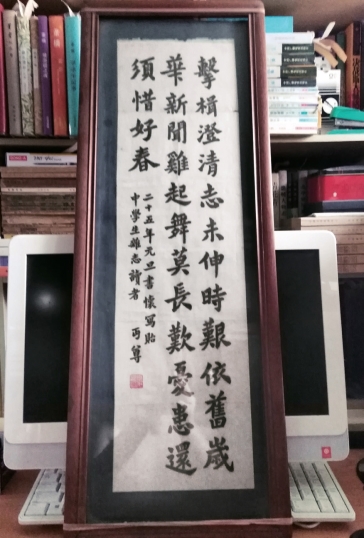 擊楫澄清志未伸時艱依舊歲
華新聞雞起舞莫長歎憂患還
須惜好春
二十五年元旦書懷寫貽
中學生雜志讀者 丏尊